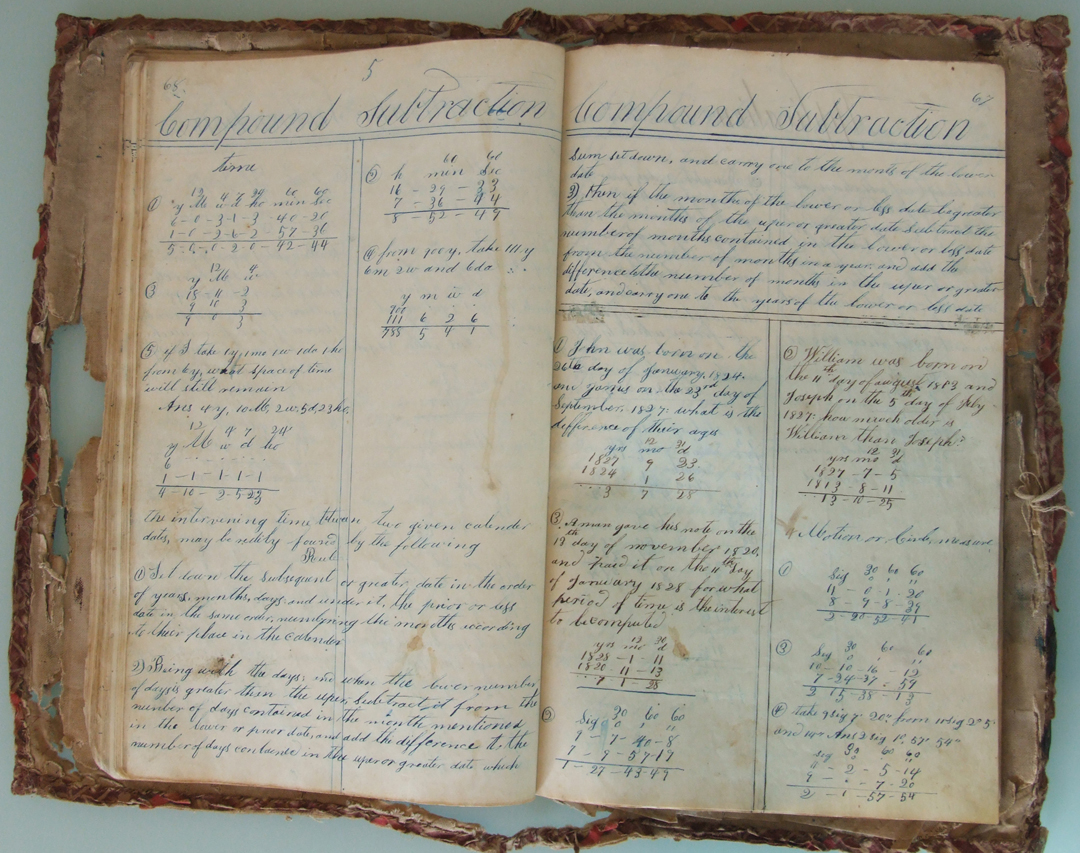 68
5
Compound Subtraction
time
12 4 7 24 60 60
① y M w d ho min sec
6-0-3-1-3-40-20
1-0-3-6-2-57-36
5-0-0-2-0-42-44
12 4
③ y M w
18-11-2
9 10 3
9 0 3
⑤ if I take 1y, 1mo 1w 1da 1ho
from 6y, what space of time
will still remain
Ans 4y, 10M, 2w, 5d, 23ho,
12 4 7 24
y M w d ho
6
1-1-1-1-1
4-10-2-5 23
60 60
② h min sec
16-29-33
7-36-44
8-52-49
④ from 900y, take 111y
6m 2w and 6da
y m w d
900
111 6 2 6
788 5 4 1
The intervening time between two given calender
dates, may be redily found by the following
Rule
① Set down the subsequent or greater date in the order
of years, months, days, and under it, the prior or less
date in the same order, numbering the months according
to their place in the calender
2) Bring with the days, and when the lower number
of days is greater than the uper, subtract it from the
number of days contained in the month mentioned
in the lower or prior date, and add the difference to the
number of days containe in the uper or greater date which
67
Compound Subtraction
Sum set down, and carry one to the month of the lower
date
3) Then if the months of the lower or less date be greater
than the months of the uper or greater date Subtract the
number of months contained in the lower or less date
from the number of months in a year, and add the
difference to the number of months in the uper or greater
date, and carry one to the years of the lower or less date
① John was born on the
26th day of January, 1824.
and James on the 23rd day of
September 1827: what is the
difference of their ages
12 31
yrs mo d
1827 9 23
1824 1 26
3 7 28
③ A man gave his note on the
13th day of november 1820,
and paid it on the 11th day
of January 1828 for what
period of time is the interest
to be computed
12 30
yrs mo d
1828-1-11
1820-11-13
7 1-28
② 30 60 60
Sig ° ' "
9-7-40-8
7-9-57-19
1-27-43-49
② William was born on
the 11th day of august 1813 and
Joseph on the 5th day of July
1827: how much older is
William than Joseph?
12 31
yrs mo d
1827-7-5
1813-8-11
13-10-25
Motion or Circle, measure
① 30 60 60
Sig ° ' "
11-0 1-20
8-9-8-39
2-20-52-41
③ 30 60 60
Sig ° ' "
10-10-16-12
7-24-37-59
2 15-38-13
④ take 9 sig 7' 20" from 11 sig 2° 5'
and 14" Ans 2 sig 1°, 57' 54"
30 60 60
Sig ° ' "
11-2-5-14
9-.-7-20
2-1-57-54